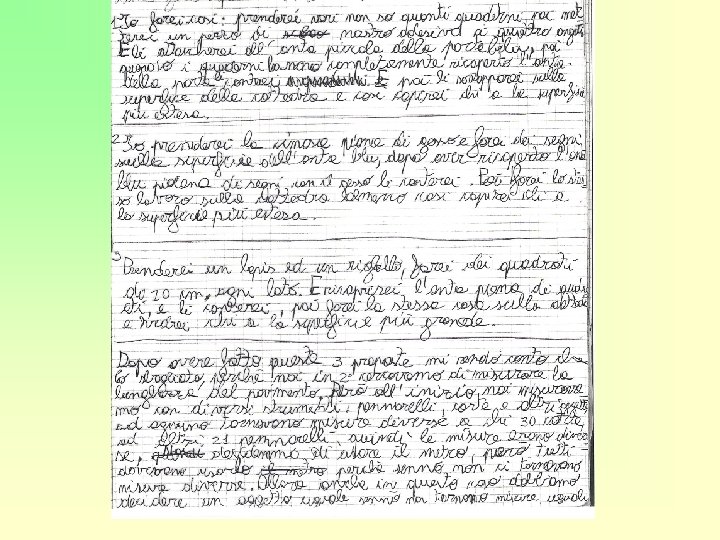 1 Io farei così: prenderei vari non so quanti quaderni poi met
terei un pezzo di nastro adesivo ai quattro angoli
E li attaccherei all'anta piccola della porta blu, poi
quando i quaderni hanno completamente ricoperto l'anta
della porta li conterei E poi li sovrapporrei sulla
superficie della cattedra e così capirei chi a la superficie
più estesa.
2 Io prenderei la cimosa piena di gesso e farei dei segni
sulla superficie dell'anta blu, dopo aver ricoperto l'anta
blu piena di segni con il gesso li conterei. Poi farei lo stes
so lavoro sulla cattedra almeno così capirei chi a
la superficie più estesa.
3
Prenderei un lapis ed un righello, farei dei quadrati
da 20 cm, ogni lato. E ricoprirei l'anta piena di quadr
ati, e li conterei, poi farei la stessa cosa sulla cattedra
e vedrei chi a la superficie più grande.
Dopo avere fatto queste 3 proposte mi rendo conto di a
lo sbagliato, perché noi in 2ª cercavamo di misurare la
lunghezza del pavimento, Però all'inizio, noi misurava
mo con diversi strumenti: pennarelli, carte e altri oggetti
ad ognuno tornavano misure diverse a chi 30 carte,
ad altri 21 pennarelli, quindi le misure erano diver
se, decidemmo di usare il metro, però tutti
dovevano usarlo perché sennò non ci tornavano
misure diverse. Allora anche in questo caso dobbiamo
decidere un oggetto uguale sennò non tornano misure uguali